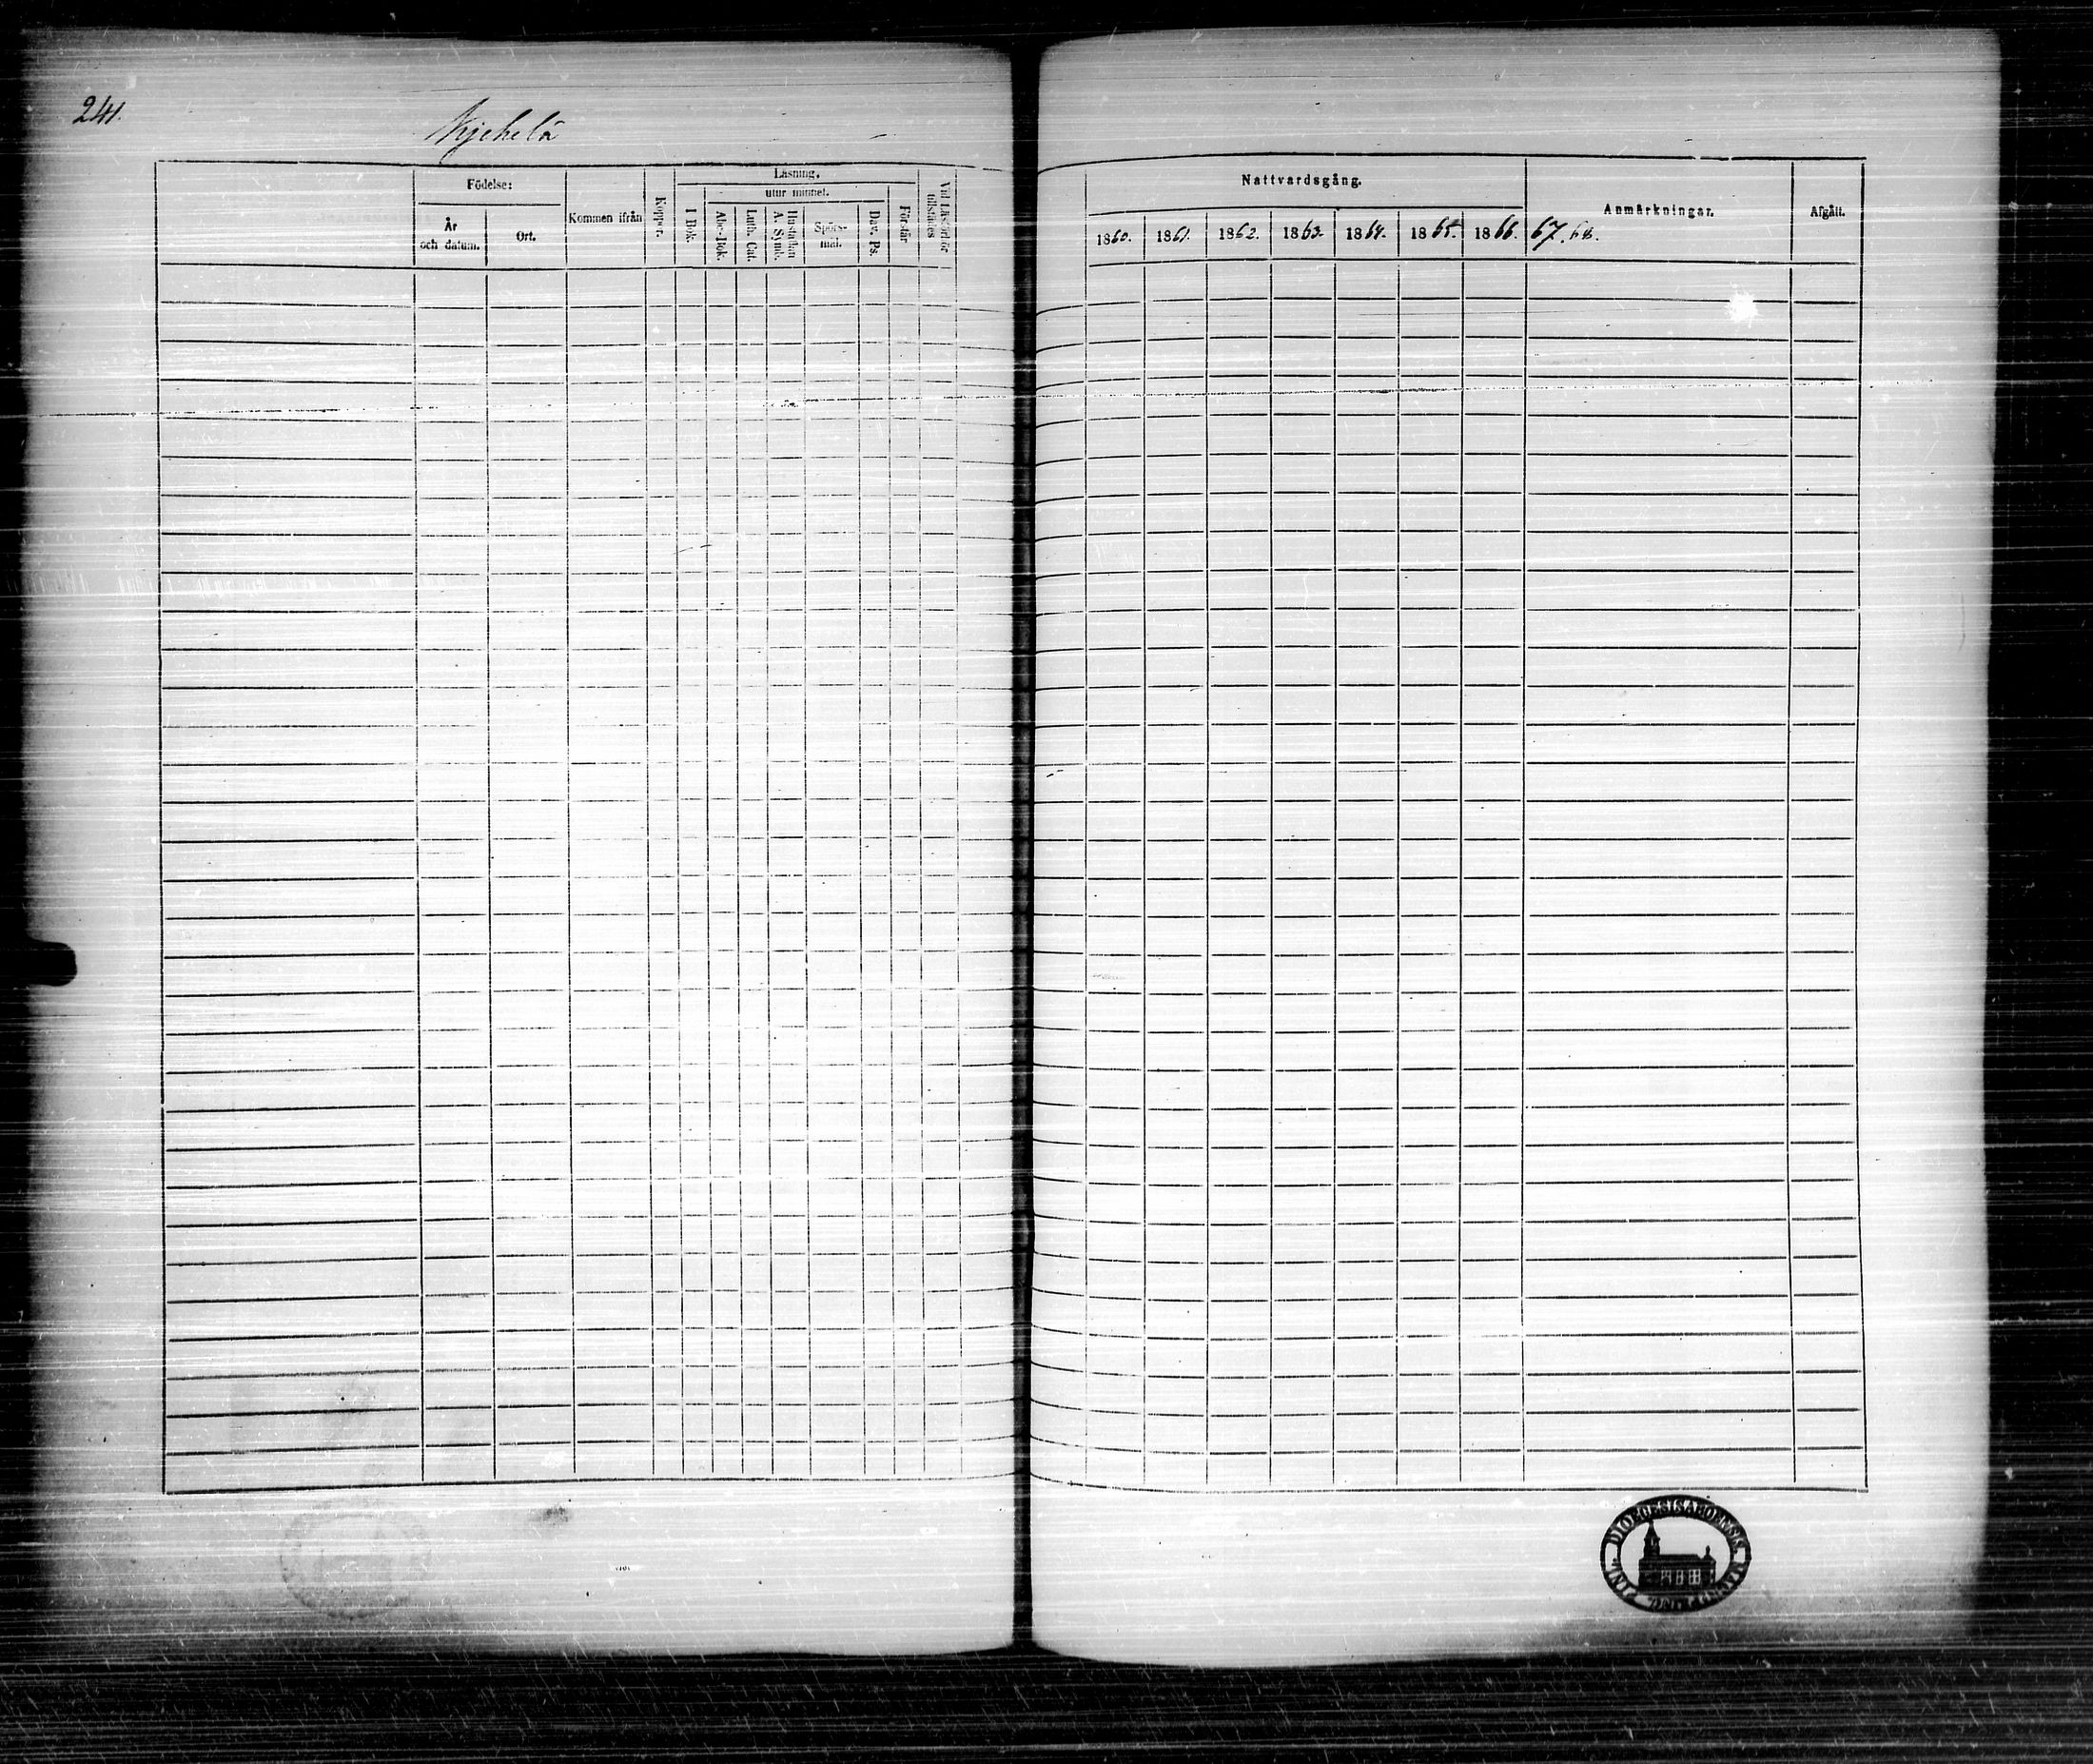 241.
Kjehelä
Födelse:
År
och datum.
Ort.
Kommen ifrån
Koppor.
Läsning.
utur minnet.
I Bok.
Abc-Bok.
Luth. Cat.
Hustaflan
A. Symb.
Spörs-
mål.
Dav. Ps.
Förstår
Nattvardsgång.
1860. 1861. 1862. 1863. 1864. 1865. 1866. 67. 68.
Anmärkningar.
Afgått.
DIOECESIS ABOENSIS